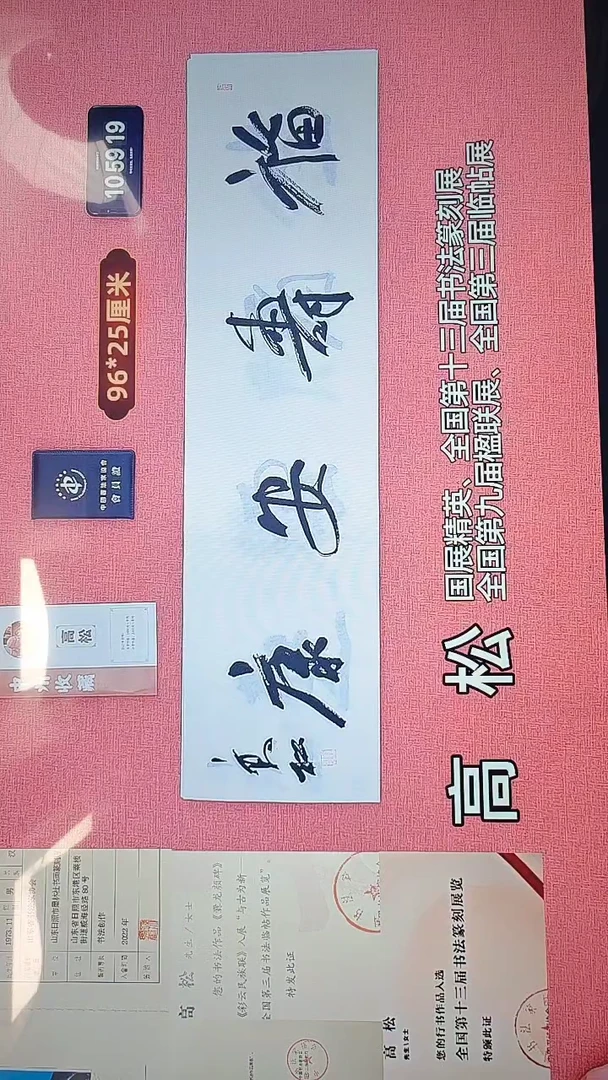 中州收藏
高松
中國書法家協會
會員證
96*25厘米
10:59 19
福壽安康
高松
高 松
国展精英、全国第十三届书法篆刻展
全国第九届楹联展、全国第三届临帖展
山东省日照市东港区秦楼
街道威海路80号
书法创作
2022年
高 松 先生/女士
您的书法作品《爨龙颜碑》
《彩云民族联》入展"与古为新
全国第三届书法临帖作品展览"。
特发此证
高 松
先生\女士
您的行书作品入选
全国第十三届书法篆刻展览
特颁此证